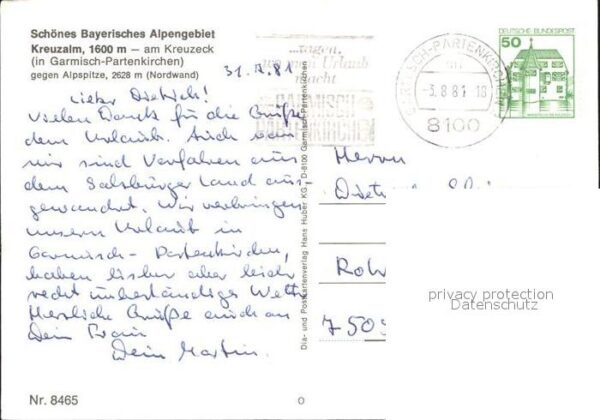 Schönes Bayerisches Alpengebiet
Kreuzalm, 1600 m – am Kreuzeck
(in Garmisch-Partenkirchen)
gegen Alpspitze, 2628 m (Nordwand)
31.7.81
Lieber Dietrich!
Vielen Dank für die Grüße
dem Urlaub. Auch von
mir sind Vorfahren aus
dem Salzburger Land aus-
gewandert. Wir verbringen
unseren Urlaub in
Garmisch-Partenkirchen,
haben bisher aber leider
recht unbeständiges Wetter
Herzliche Grüße auch an
Dein Frau
Dein Martin.
Nr. 8465
Dia- und Postkartenverlag Hans Huber KG · D-8100 Garmisch-Partenkirchen
...wagen,
Urlaub
macht
GARMISCH
PARTENKIRCHEN
GARMISCH-PARTENKIRCHEN
-3.8.81-18
8100
DEUTSCHE BUNDESPOST
50
Herrn
Rohr
privacy protection
Datenschutz